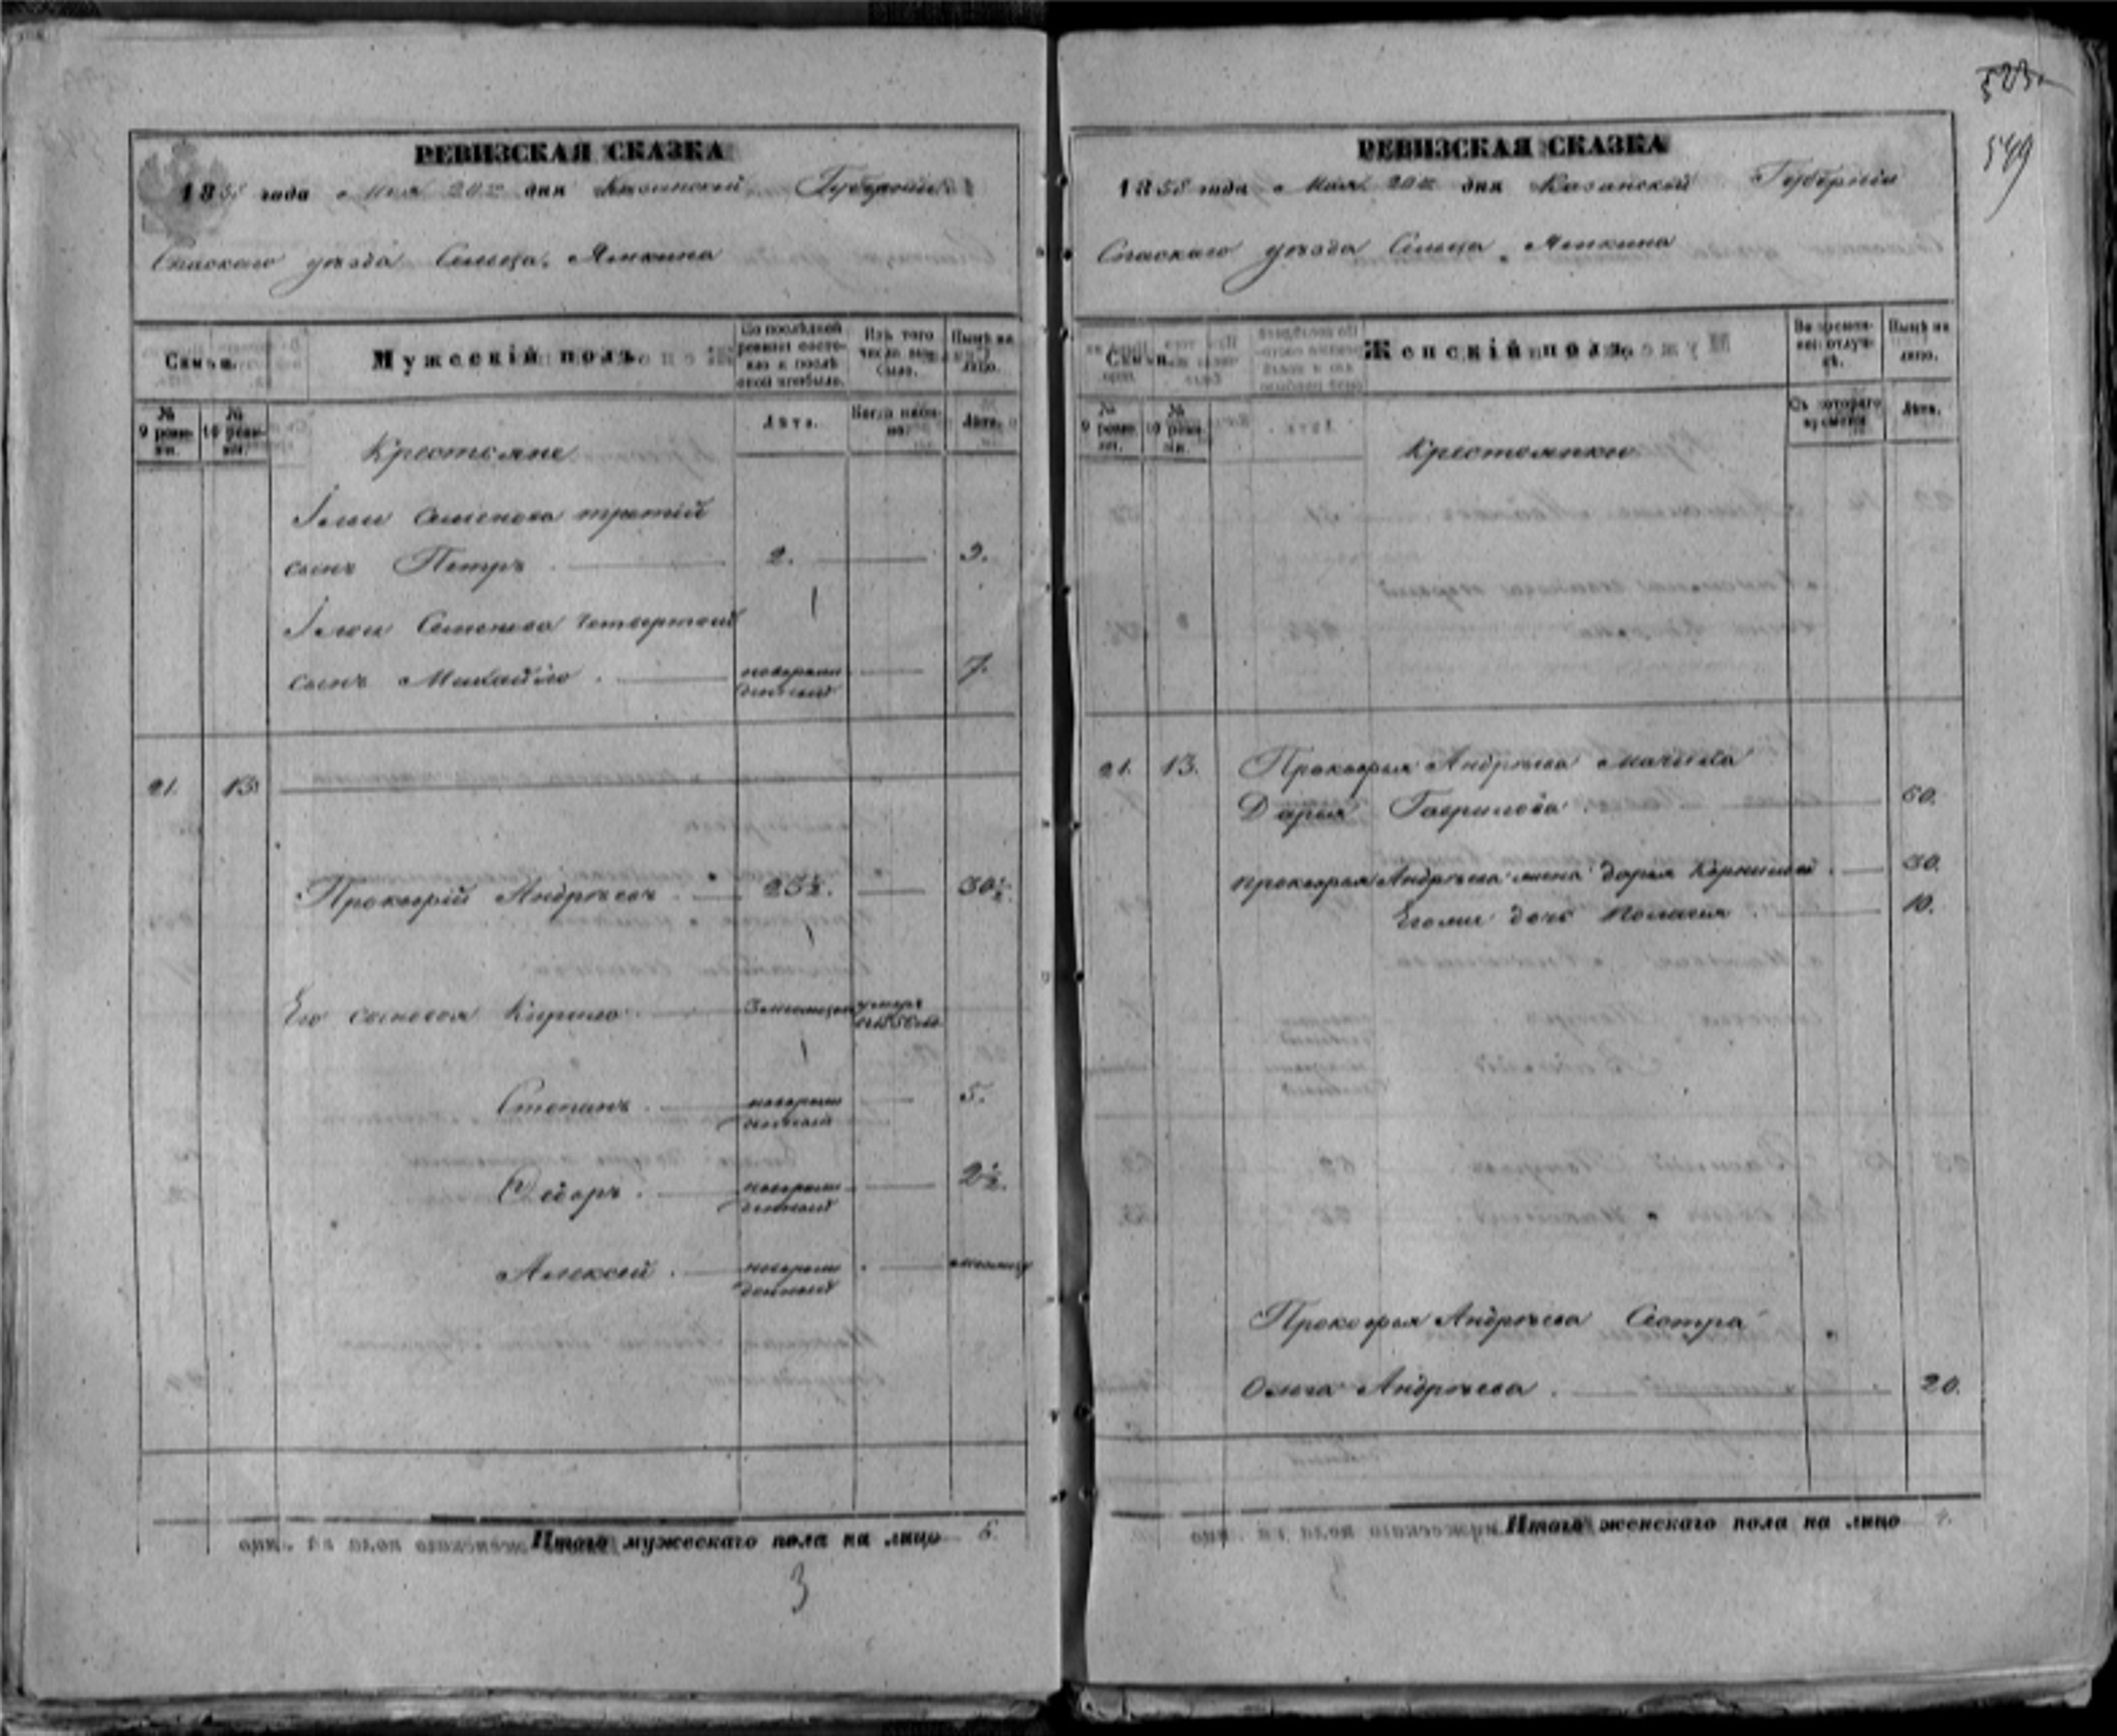 РЕВИЗСКАЯ СКАЗКА
1858 года Мая 20го дня Казанской Губернiи
Спаскаго уѣзда Сельца Ямкина
Семьи.
Мужескiй полъ.
По послѣдней ревизiи состояло и послѣ оной прибыло.
Изъ того числа выбыло.
Нынѣ на лицо.
№ 9 ревизiи.
№ 10 ревизiи.
Лѣта.
Когда именно.
Лѣта.
Крестьяне
Ильи Семенова третiй
сынъ Петръ 2. 9.
Ильи Семенова четвертый
сынъ Михайло новорожденный 7.
21. 13.
Прокофiй Андрѣевъ 23½. 30½.
Его сыновья Кирило 3 месяцов умеръ въ 1850 год.
Степанъ новорожденный 5.
Федоръ новорожденный 2½.
Алексей новорожденный месяцъ
Итого мужескаго пола на лицо 6.
3
523
549
РЕВИЗСКАЯ СКАЗКА
1858 года Мая 20го дня Казанской Губернiи
Спаскаго уѣзда Сельца Ямкина
Семьи.
Женскiй полъ.
Во временной отлучкѣ.
Нынѣ на лицо.
№ 9 ревизiи.
№ 10 ревизiи.
Съ котораго времени.
Лѣта.
Крестьянки
21. 13. Прокофья Андрѣева мачиха
Дарья Гаврилова 60.
Прокофья Андрѣева жена Дарья Корнилова 30.
Его же дочь Пелагея 10.
Прокофья Андрѣева Сестра
Ольга Андрѣева 20.
Итого женскаго пола на лицо 4.